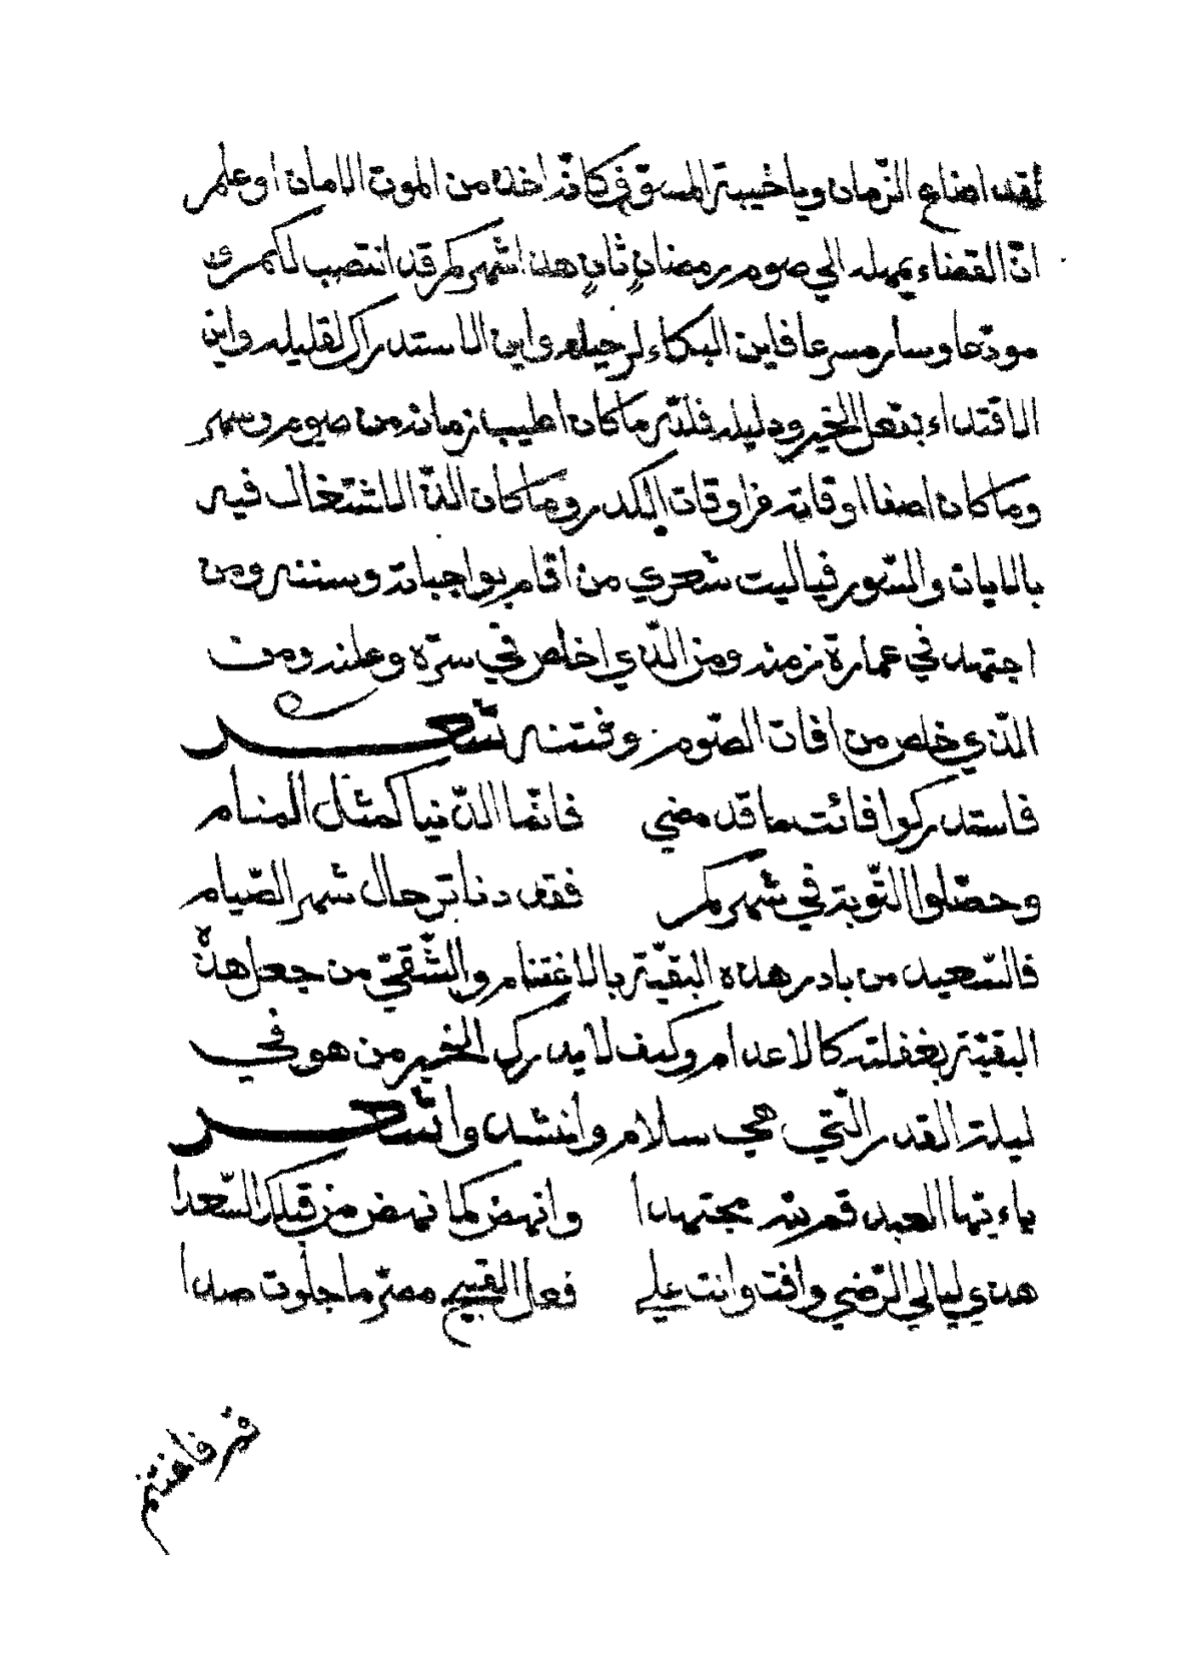 لقد اضاع الزّمان وياخيبة المسوّف كانّه اخذ من الموت الامان او علم
انّ القضاء يمهله الي صوم رمضانٍ ثانٍ هذا شهركم قد انتصب لكم
مودّعا وسار مسرعا فاين البكاء لرحيله واين الاستدراك لقليله واين
الاقتداء بفعل الخير ودليله فللّه ما كان اطيب زمانه من صوم وسهر
وما كان اصفا اوقاته من اوقات الكدر وما كان الذّ الاشتغال فيه
بالايات والسّور فياليت شعري من اقام بواجباته وسننه ومن
اجتهد في عمارة زمنه ومن الّذي اخلص في سرّه وعلنه ومن
الّذي خلص من افات الصّوم وفتنه شعر
فاستدركوا فائت ما قد مضي فانّما الدّنيا كمثل المنام
وحصّلوا التّوبة في شهركم فقد دنا ترحال شهر الصّيام
فالسّعيد من بادر هذه البقيّة بالاغتنام والشّقيّ من جعل هذه
البقيّة بغفلته كالاعدام وكيف لا يدرك الخير من هو في
ليلة القدر الّتي هي سلام وانشد وا شعر
ياءيّها العبد قم لله مجتهدا وانهض كما نهض من قبلك السّعدا
هذي ليالي الرّضي وافت وانت علي فعل القبيح مصرّ ما جلوت صدا
قم فاغتنم